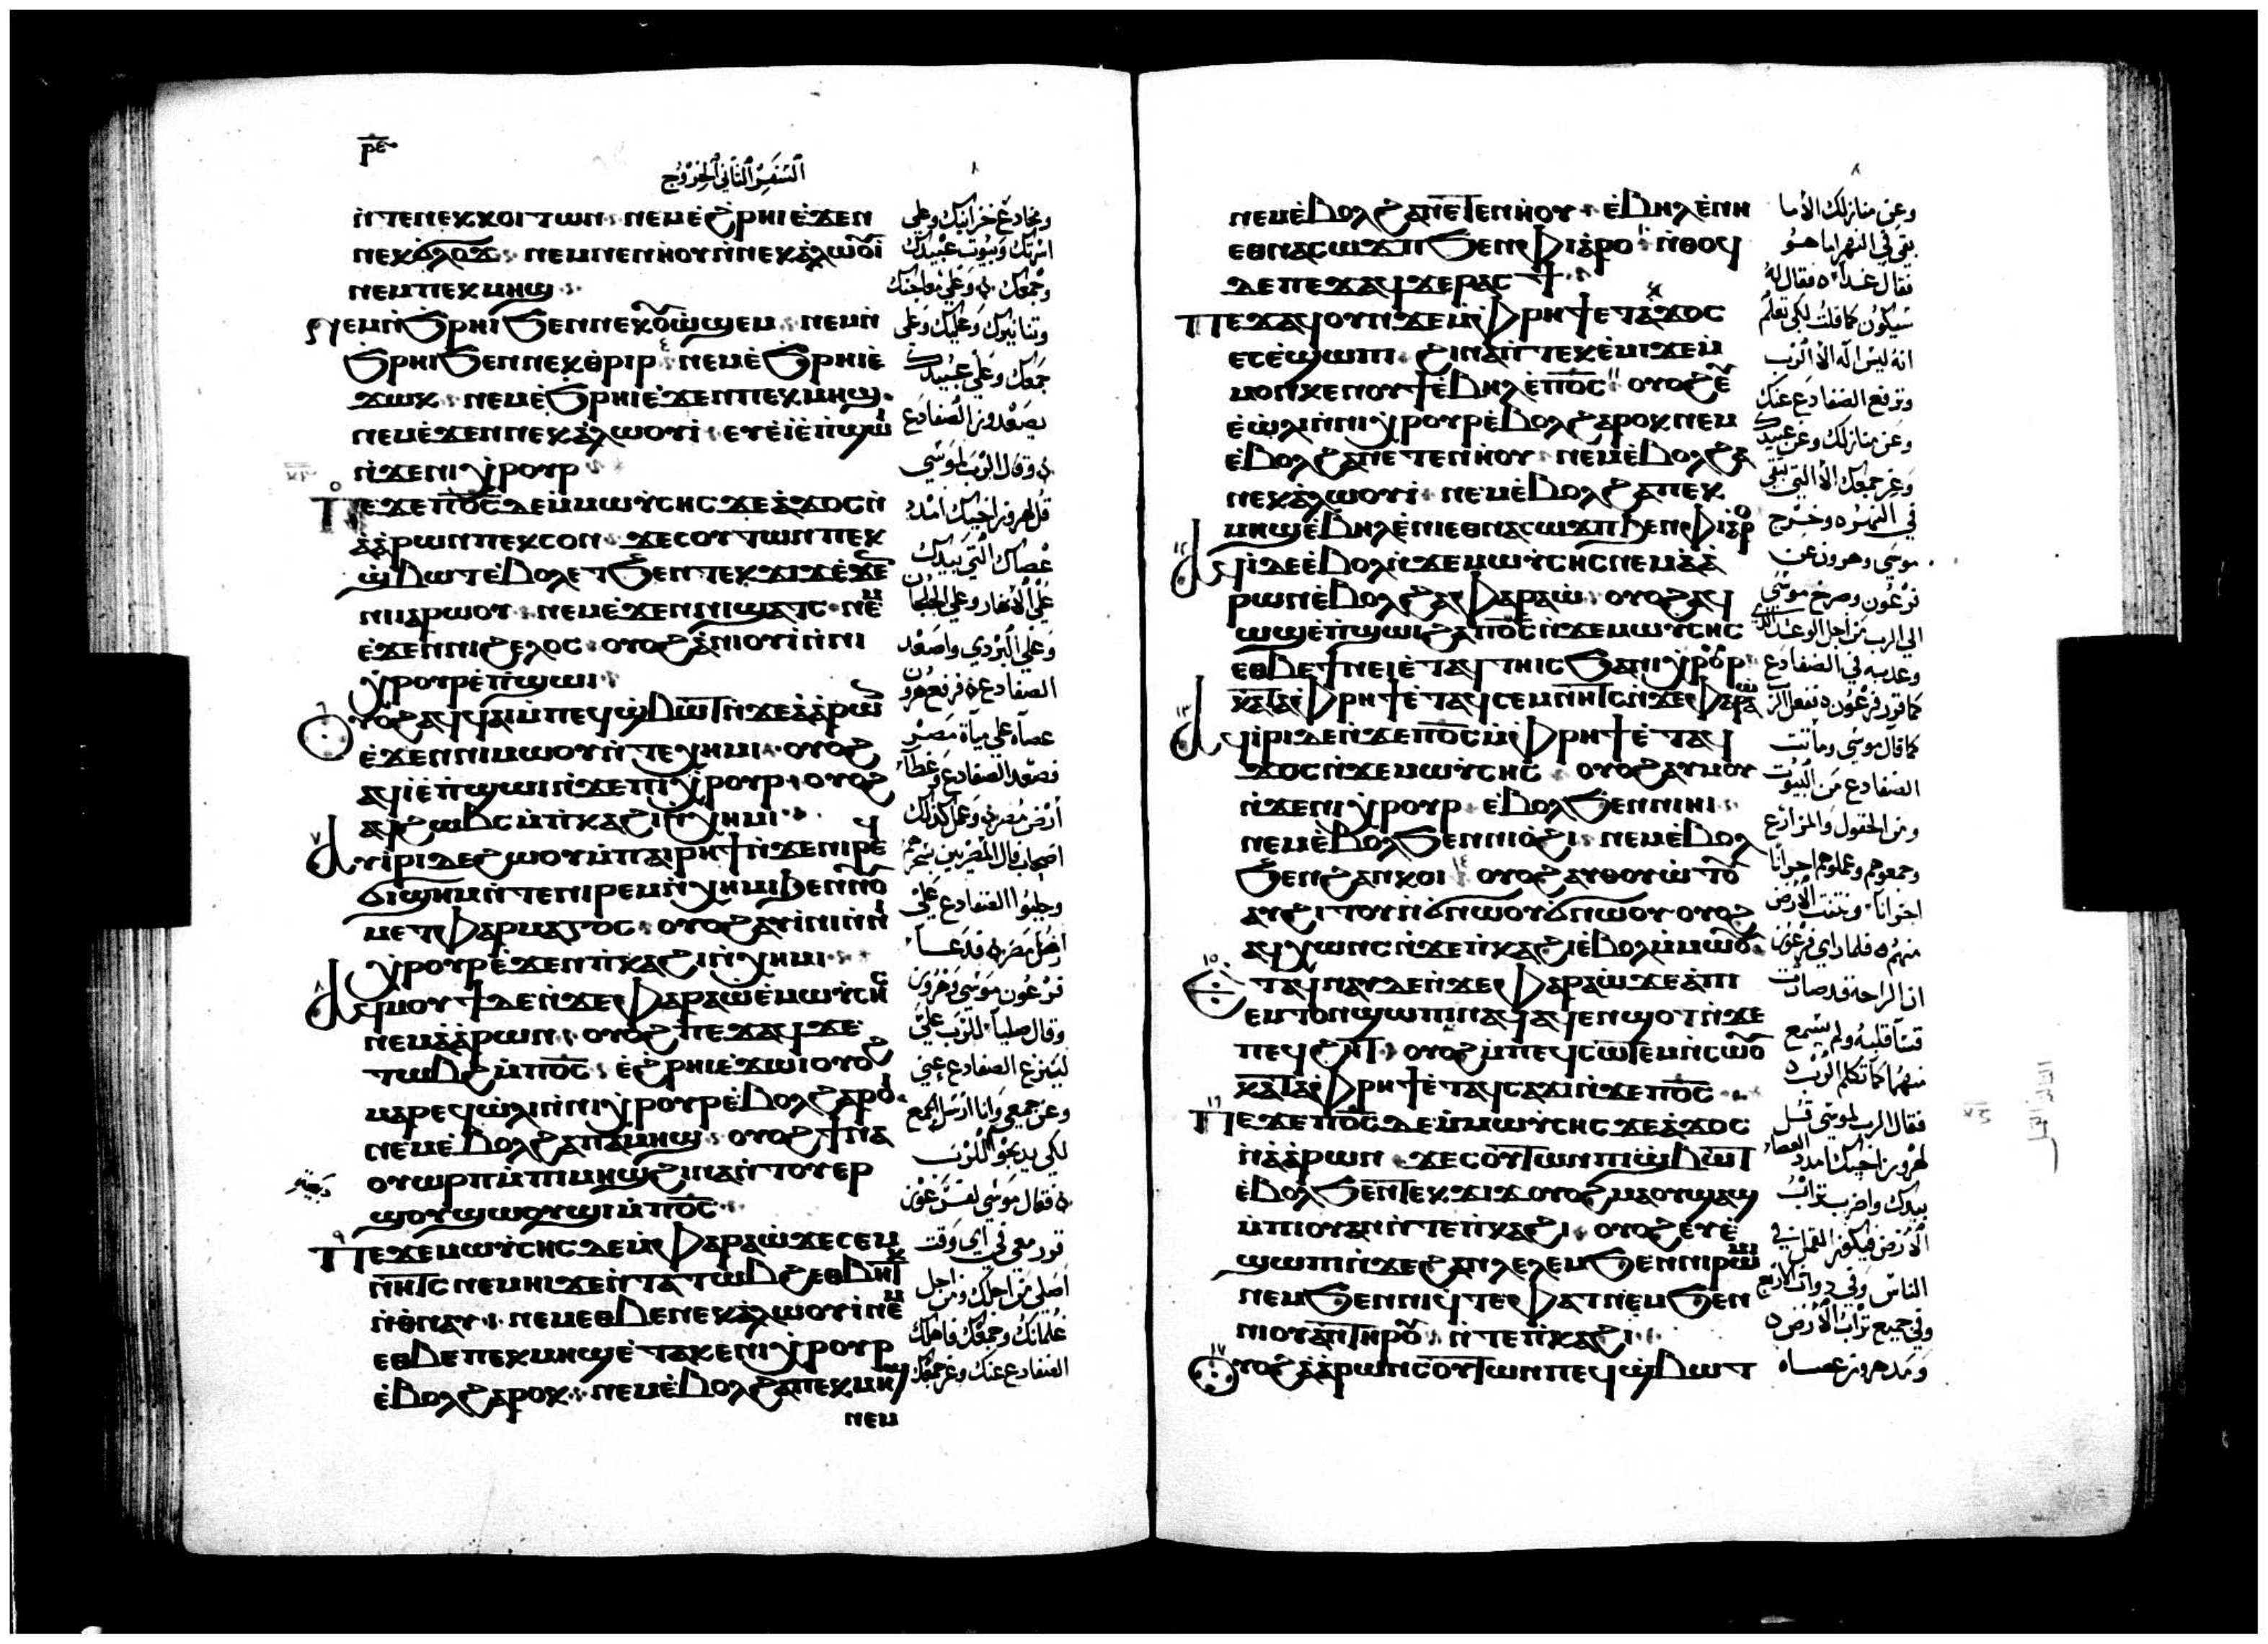 ⲣⲉ
السفر الثاني الخروج
ⲛ̀ⲧⲉⲛⲉⲕⲕⲟⲓⲧⲱⲛ ⲛⲉⲙⲉ̀ϩ̀ⲣⲏⲓⲉ̀ϫⲉⲛ
ⲛⲉⲕϭⲗⲟϫ ⲛⲉⲙⲛⲉⲛⲏⲟⲩⲛ̀ⲛⲉⲕⲁ̀ⲗⲱⲟⲩⲓ̈
ⲛⲉⲙⲡⲉⲕⲙⲏϣ
ⲛⲉⲙⲛ̀ϧⲣⲏⲓϧⲉⲛⲛⲉⲕⲟⲩⲱϣⲉⲙ ⲛⲉⲙⲛ̀
ϧⲣⲏⲓϧⲉⲛⲛⲉⲕⲑⲣⲓⲣ ⲛⲉⲙⲉ̀ϧⲣⲏⲓⲉ̀
ϫⲱⲕ ⲛⲉⲙⲉ̀ϧⲣⲏⲓⲉ̀ϫⲉⲛⲡⲉⲕⲙⲏϣ
ⲛⲉⲙⲉ̀ϫⲉⲛⲛⲉⲕⲁ̀ⲗⲱⲟⲩⲓ̀ ⲉⲩⲉ̀ⲓ̀ⲉ̀ⲡ̀ϣⲱⲓ
ⲛ̀ϫⲉⲛⲓⲭⲣⲟⲩⲣ
ⲡⲉϫⲉⲡⲟ̅ⲥ̅ⲇⲉⲙ̀ⲙⲱⲩ̀ⲥⲏⲥϫⲉⲁ̀ϫⲟⲥⲛ̀
ⲁ̀ⲁ̀ⲣⲱⲛⲡⲉⲕⲥⲟⲛ ϫⲉⲥⲟⲩⲧⲱⲛⲡⲉⲕ
ϣ̀ⲃⲱⲧⲉ̀ⲃⲟⲗⲉⲧϧⲉⲛⲧⲉⲕϫⲓϫⲉ̀ϫⲉⲛ
ⲛⲓⲓⲁⲣⲱⲟⲩ ⲛⲉⲙⲉ̀ϫⲉⲛⲛⲓϣⲁⲧⲥ ⲛⲉⲙ
ⲉ̀ϫⲉⲛⲛⲓϩⲉⲗⲟⲥ ⲟⲩⲟϩⲁ̀ⲛⲓⲟⲩⲓ̀ⲛ̀ⲛⲓ
ⲭⲣⲟⲩⲣⲉ̀ⲡ̀ϣⲱⲓ
ⲟⲩⲟϩⲁϥϥⲁⲓⲙ̀ⲡⲉϥϣ̀ⲃⲱⲧⲛ̀ϫⲉⲁ̀ⲁ̀ⲣⲱⲛ
ⲉ̀ϫⲉⲛⲛⲓⲙⲱⲟⲩⲛ̀ⲧⲉⲭⲏⲙⲓ ⲟⲩⲟϩ
ⲁϥⲓ̀ⲉ̀ⲡ̀ϣⲱⲓⲛ̀ϫⲉⲡⲓⲭⲣⲟⲩⲣ ⲟⲩⲟϩ
ⲁϥϩⲱⲃⲥⲙ̀ⲡ̀ⲕⲁϩⲓⲛ̀ⲭⲏⲙⲓ
ⲁⲩⲓ̀ⲣⲓⲇⲉϩⲱⲟⲩⲙ̀ⲡⲁⲓⲣⲏϯⲛ̀ϫⲉⲛⲓⲣⲉϥ
ϭⲓϣⲏⲙⲛ̀ⲧⲉⲛⲓⲣⲉⲙⲛ̀ⲭⲏⲙⲓϧⲉⲛⲛⲟⲩ
ⲙⲉⲧⲫⲁⲣⲙⲁⲅⲟⲥ ⲟⲩⲟϩⲁⲩⲓ̀ⲛⲓⲛ̀ⲛⲓ
ⲭⲣⲟⲩⲣⲉ̀ϫⲉⲛⲡ̀ⲕⲁϩⲓⲛ̀ⲭⲏⲙⲓ
ⲁϥⲙⲟⲩϯⲇⲉⲛ̀ϫⲉⲫⲁⲣⲁⲱ̀ⲉ̀ⲙⲱⲩ̀ⲥⲏⲥ
ⲛⲉⲙⲁ̀ⲁ̀ⲣⲱⲛ ⲟⲩⲟϩⲡⲉϫⲁϥϫⲉ
ⲧⲱⲃϩⲙ̀ⲡⲟ̅ⲥ̅ ⲉ̀ϩ̀ⲣⲏⲓⲉ̀ϫⲱⲓⲟⲩⲟϩ
ⲙⲁⲣⲉϥⲱ̀ⲗⲓⲛ̀ⲛⲓⲭⲣⲟⲩⲣⲉ̀ⲃⲟⲗϩⲁⲣⲟⲓ
ⲛⲉⲙⲉ̀ⲃⲟⲗϩⲁⲡⲁⲙⲏϣ ⲟⲩⲟϩϯⲛⲁ
ⲟⲩⲱⲣⲡⲙ̀ⲡⲓⲙⲏϣϩⲓⲛⲁⲛ̀ⲧⲟⲩⲉⲣ
ϣⲟⲩϣⲱⲟⲩϣⲓⲙ̀ⲡⲟ̅ⲥ̅
ⲡⲉϫⲉⲙⲱⲩ̀ⲥⲏⲥⲇⲉⲙ̀ⲫⲁⲣⲁⲱ̀ϫⲉⲥⲉⲙ
ⲛⲏⲧⲥⲛⲉⲙⲏⲓϫⲉⲛ̀ⲧⲁⲧⲱⲃϩⲉⲑⲃⲏⲧⲕ
ⲛ̀ⲑⲛⲁⲩ ⲛⲉⲙⲉⲑⲃⲉⲛⲉⲕⲁ̀ⲗⲱⲟⲩⲓ̀ⲛⲉⲙ
ⲉⲑⲃⲉⲡⲉⲕⲙⲏϣⲉ̀ⲧⲁⲕⲉⲛⲓⲭⲣⲟⲩⲣ
ⲉ̀ⲃⲟⲗϩⲁⲣⲟⲕ ⲛⲉⲙⲉ̀ⲃⲟⲗϩⲁⲡⲉⲕⲙⲏϣ
ⲛⲉⲙ
ومخادع خزائنك وعلى
اسرتك وبيوت عبيدك
وجمعك وعلى معاجنك
وتنانيرك وعليك وعلى
جمعك وعلى عبيدك
يصعدون الضفادع
وقال الرب لموسى
قل لهرون اخيك امدد
عصاك التي بيدك
على الانهار وعلى الخلجان
وعلى البردي واصعد
الضفادع فرفع هرون
عصاه على مياة مصر
فصعد الضفادع وغطا
ارض مصر وعمل كذلك
اصحاب فال المصريين بسحرهم
وجلبوا الضفادع على
ارض مصر فدعا
فرعون موسى وهرون
وقال صليا للرب على
لينزع الضفادع عني
وعن جمعي وانا ارسل الجمع
لكي يذبحوا للرب
فقال موسى لفرعون
قرر معي في اي وقت
اصلي من اجلك ومن اجل
غلمانك وجمعك فاهلك
الضفادع عنك وعن جمعك
ⲛⲉⲙⲉ̀ⲃⲟⲗϩⲁⲛⲉⲧⲉⲛⲏⲟⲩ ⲉ̀ⲃⲏⲗⲉ̀ⲛⲏ
ⲉⲑⲛⲁⲥⲱϫⲡϧⲉⲛⲫⲓⲁⲣⲟ ⲛ̀ⲑⲟϥ
ⲇⲉⲡⲉϫⲁϥϫⲉⲣⲁⲥϯ
ⲡⲉϫⲁϥⲟⲩⲛϫⲉⲙ̀ⲫⲣⲏϯⲉⲧⲁⲕϫⲟⲥ
ⲉⲥⲉ̀ϣⲱⲡⲓ ϩⲓⲛⲁⲛ̀ⲧⲉⲕⲉ̀ⲙⲓϫⲉⲙ
ⲙⲟⲛⲕⲉⲛⲟⲩϯⲉ̀ⲃⲏⲗⲉ̀ⲡⲟ̅ⲥ̅ ⲟⲩⲟϩⲉⲩ
ⲉ̀ⲱ̀ⲗⲓⲛ̀ⲛⲓⲭⲣⲟⲩⲣⲉ̀ⲃⲟⲗϩⲁⲣⲟⲕⲛⲉⲙ
ⲉ̀ⲃⲟⲗϩⲁⲛⲉⲧⲉⲛⲏⲟⲩ ⲛⲉⲙⲉ̀ⲃⲟⲗϩⲁ
ⲛⲉⲕⲁ̀ⲗⲱⲟⲩⲓ̀ ⲛⲉⲙⲉ̀ⲃⲟⲗϩⲁⲡⲉⲕ
ⲙⲏϣⲉ̀ⲃⲏⲗⲉ̀ⲛⲓⲉⲑⲛⲁⲥⲱϫⲡϧⲉⲛⲫⲓⲁⲣⲟ
ⲁϥⲓ̀ⲇⲉⲉ̀ⲃⲟⲗⲛ̀ϫⲉⲙⲱⲩ̀ⲥⲏⲥⲛⲉⲙⲁ̀ⲁ̀
ⲣⲱⲛⲉ̀ⲃⲟⲗϩⲁⲫⲁⲣⲁⲱ̀ ⲟⲩⲟϩⲁϥ
ⲱϣⲉ̀ⲡ̀ϣⲱⲓϩⲁⲡⲟ̅ⲥ̅ⲛ̀ϫⲉⲙⲱⲩ̀ⲥⲏⲥ
ⲉⲑⲃⲉϯⲛⲉⲓⲉ̀ⲧⲁϥⲧⲏⲓⲥϧⲁⲛⲓⲭⲣⲟⲩⲣ
ⲕⲁⲧⲁⲫⲣⲏϯⲉ̀ⲧⲁϥⲥⲉⲙⲛⲏⲧⲥⲛ̀ϫⲉⲫⲁⲣⲁⲱ
ⲁϥⲓ̀ⲣⲓⲇⲉⲛ̀ϫⲉⲡⲟ̅ⲥ̅ⲙ̀ⲫⲣⲏϯⲉ̀ⲧⲁϥ
ϫⲟⲥⲛ̀ϫⲉⲙⲱⲩ̀ⲥⲏⲥ ⲟⲩⲟϩⲁⲩⲙⲟⲩ
ⲛ̀ϫⲉⲛⲓⲭⲣⲟⲩⲣ ⲉ̀ⲃⲟⲗϧⲉⲛⲛⲓⲏⲓ
ⲛⲉⲙⲉ̀ⲃⲟⲗϧⲉⲛⲛⲓⲟ̀ϩⲓ ⲛⲉⲙⲉ̀ⲃⲟⲗ
ϧⲉⲛϩⲁⲛⲕⲟⲓ ⲟⲩⲟϩⲁⲩⲑⲟⲩⲱⲧⲟⲩ
ⲁⲩϩⲓⲧⲟⲩⲛ̀ϭⲛⲱⲟⲩϭⲛⲱⲟⲩ ⲟⲩⲟϩ
ⲁϥⲭⲱⲛⲥⲛ̀ϫⲉⲡ̀ⲕⲁϩⲓⲉ̀ⲃⲟⲗⲙ̀ⲙⲱⲟⲩ
ⲉⲧⲁϥⲛⲁⲩⲇⲉⲛ̀ϫⲉⲫⲁⲣⲁⲱ̀ϫⲉⲁ̀ⲡⲓ
ⲉⲙⲧⲟⲛϣⲱⲡⲓⲁϥⲉⲛϣⲟⲧⲛ̀ϫⲉ
ⲡⲉϥϩⲏⲧ ⲟⲩⲟϩⲙ̀ⲡⲉϥⲥⲱⲧⲉⲙⲛ̀ⲥⲱⲟⲩ
ⲕⲁⲧⲁⲫⲣⲏϯⲉ̀ⲧⲁϥⲥⲁϫⲓⲛ̀ϫⲉⲡⲟ̅ⲥ̅
ⲡⲉϫⲉⲡⲟ̅ⲥ̅ⲇⲉⲙ̀ⲙⲱⲩ̀ⲥⲏⲥϫⲉⲁ̀ϫⲟⲥ
ⲛ̀ⲁ̀ⲁ̀ⲣⲱⲛ ϫⲉⲥⲟⲩⲧⲱⲛⲡⲓϣ̀ⲃⲱⲧ
ⲉ̀ⲃⲟⲗϧⲉⲛⲧⲉⲕϫⲓϫ ⲟⲩⲟϩⲙⲁⲟⲩϣⲁϣ
ⲙ̀ⲡⲓⲟⲩⲁⲛⲛ̀ⲧⲉⲡ̀ⲕⲁϩⲓ ⲟⲩⲟϩⲉⲩⲉ̀
ϣⲱⲡⲓⲛ̀ϫⲉϩⲁⲛⲗⲉⲗⲉⲙϧⲉⲛⲛⲓⲣⲱⲙⲓ
ⲛⲉⲙϧⲉⲛⲛⲓϥⲧⲉⲫⲁⲧⲛⲉⲙϧⲉⲛ
ⲡⲓⲟⲩⲁⲛⲧⲏⲣϥ ⲛ̀ⲧⲉⲡ̀ⲕⲁϩⲓ
ⲟⲩⲟϩⲁ̀ⲁ̀ⲣⲱⲛⲥⲟⲩⲧⲱⲛⲡⲉϥϣ̀ⲃⲱⲧ
وعن منازلك الا ما
يبقى في النهر اما هو
فقال غدا فقال له
سيكون كما قلت لكي تعلم
انه ليس اله الا الرب
وترفع الضفادع عنك
وعن منازلك وعن عبيدك
وعن جمعك الا التي تبقى
في النهر وخرج
موسى وهرون عن
فرعون وصرخ موسى
الى الرب من اجل الوعد الذي
وعد به في الضفادع
كما قرر فرعون ففعل الرب
كما قال موسى وماتت
الضفادع من البيوت
ومن الحقول والمزارع
وجمعوهم وعملوهم اجرانا
اجرانا ونتنت الارض
منهم فلما راى فرعون
ان الراحة قد صارت
قسا قلبه ولم يسمع
منهما كما تكلم الرب
فقال الرب لموسى قل
لهرون اخيك امدد العصا
بيدك واضرب تراب
الارض فيكون القمل في
الناس وفي ذوات الاربع
وفي جميع تراب الارض
ومد هرون عصاه